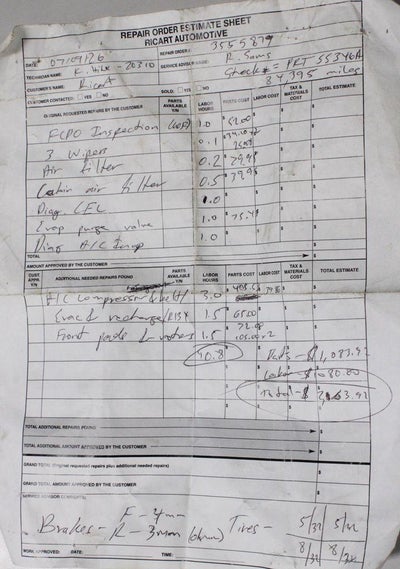 REPAIR ORDER ESTIMATE SHEET
RICART AUTOMOTIVE
DATE: 07/09/126 REPAIR ORDER: 3555879
TECHNICIAN NAME: K. 20310 SERVICE ADVISOR R. Sams
CUSTOMER'S NAME: Ricart Stock# = PRT 55346A
CUSTOMER CONTACTED: YES NO SOLD: YES NO 84,395 miles
ORIGINAL REQUESTED REPAIRS BY THE CUSTOMER PARTS AVAILABLE Y/N LABOR HOURS PARTS COST LABOR COST TAX & MATERIALS COST TOTAL ESTIMATE
FCPO Inspection 1.0
3 Wipers 0.1
Air filter 0.2 29.95
Cabin air filter 0.5 39.95
Diag CEL 1.0
Evap purge valve 1.0
Diag A/C 1.0
TOTAL
AMOUNT APPROVED BY THE CUSTOMER
CUST. APPR. Y/N ADDITIONAL NEEDED REPAIRS FOUND PARTS AVAILABLE Y/N LABOR HOURS PARTS COST LABOR COST TAX & MATERIALS COST TOTAL ESTIMATE
A/C Compressor & belt 3.0
Evac & recharge/R134 1.5 65.00
Front pads & rotors 1.5 105.00 x 2
10.8 Parts - $1,083.92
Labor - $1080.00
Total - $2,163.92
TOTAL ADDITIONAL REPAIRS FOUND
TOTAL ADDITIONAL AMOUNT APPROVED BY THE CUSTOMER
GRAND TOTAL (Original requested repairs plus additional needed repairs)
GRAND TOTAL AMOUNT APPROVED BY THE CUSTOMER
SERVICE ADVISOR COMMENTS:
Brakes - F - 4mm Tires - 5/32 5/32
R - 3mm (6mm) 8/32 8/32
WORK APPROVED: DATE: TIME: